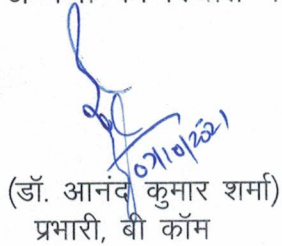 07/10/2021
(डॉ. आनंद कुमार शर्मा)
प्रभारी, बी कॉम